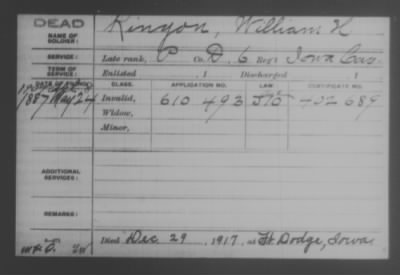 DEAD
NAME OF SOLDIER: Kinyon, William H
SERVICE: Late rank, P Co. D, 6 Reg't Iowa Cav.
TERM OF SERVICE: Enlisted , 1 Discharged 1
DATE OF FILING. CLASS. APPLICATION NO. LAW CERTIFICATE NO.
1887 May 24 Invalid, 610 493 432 689
Widow,
Minor,
ADDITIONAL SERVICES:
REMARKS:
Died Dec. 29, 1917, at Ft. Dodge, Iowa.